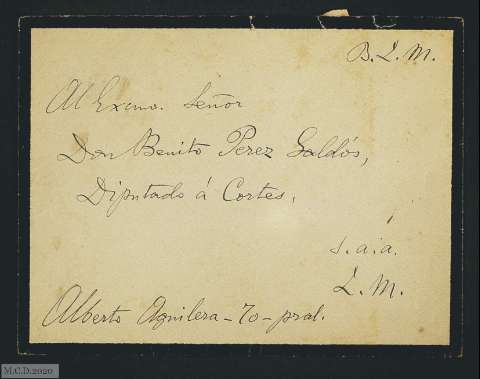 B. L. M.
Al Excmo. Señor
Don Benito Perez Galdós,
Diputado á Cortes.
s. a. a.
L. M.
Alberto Aguilera - 70 - pral.
M.C.D.2020